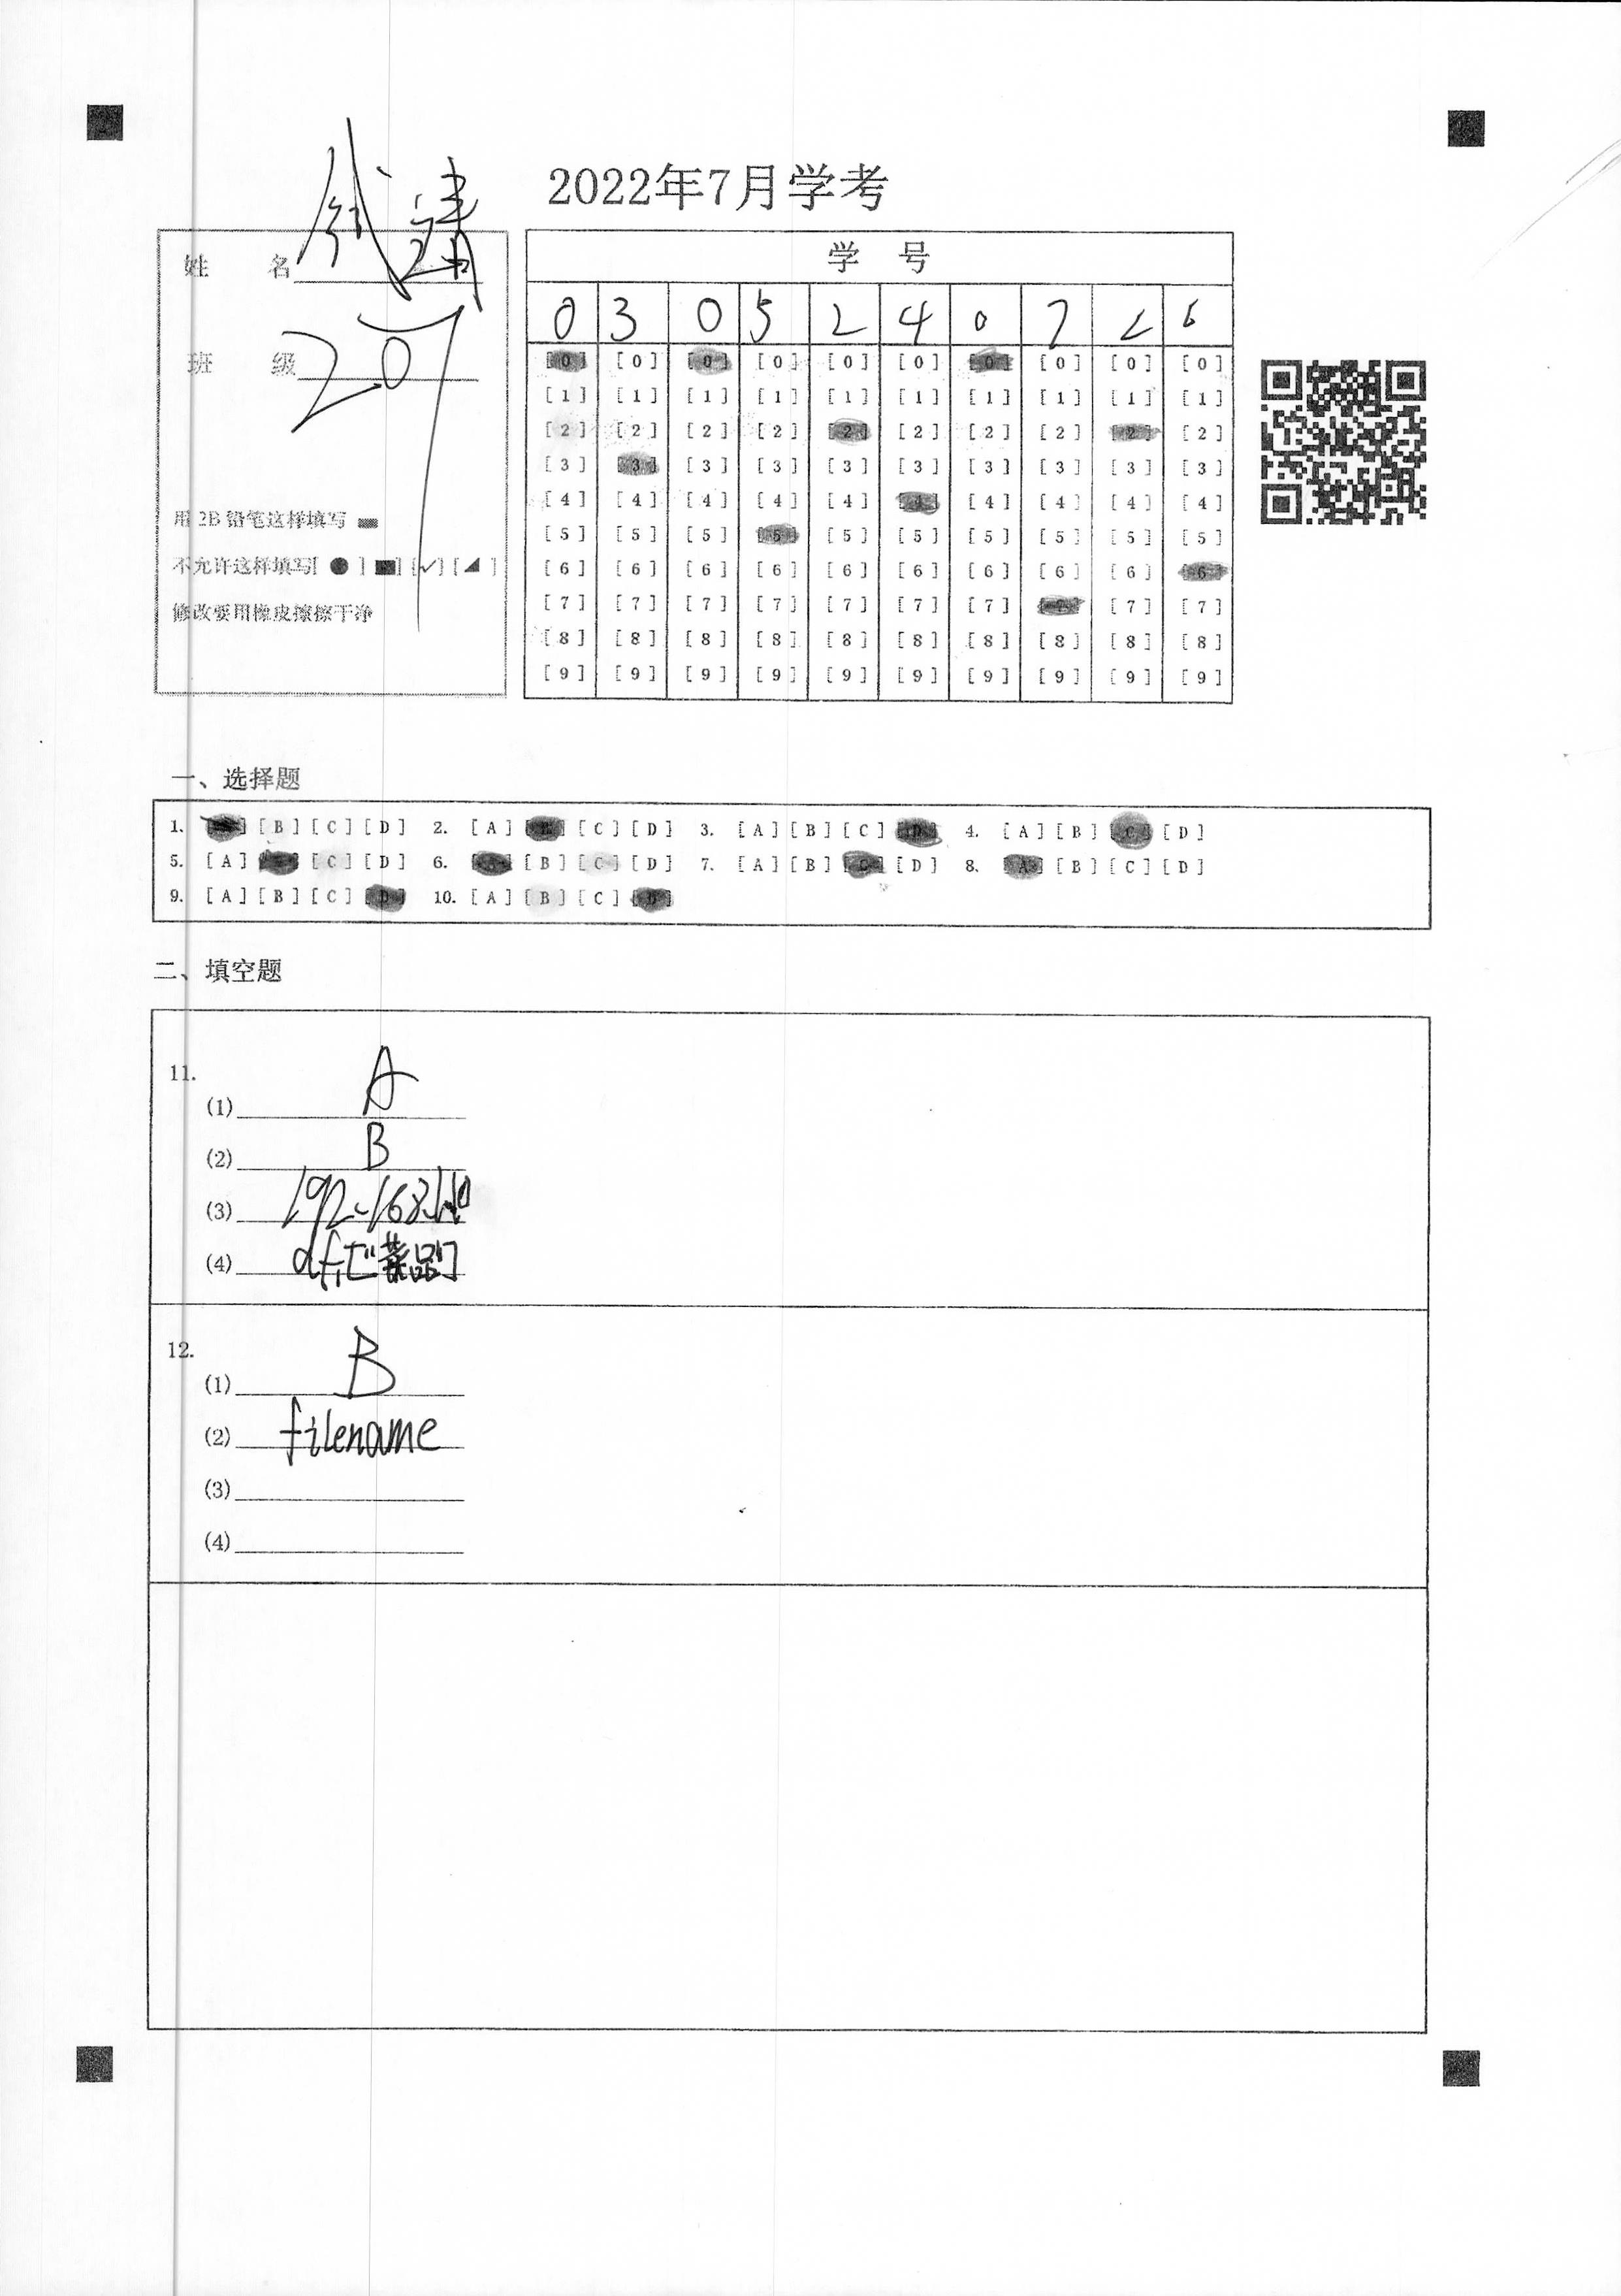 2022年7月学考
姓 名 钱靖
班 级 207
用2B铅笔这样填写
不允许这样填写[ ● ] [■] [✓] [◢ ]
修改要用橡皮擦擦干净
学 号
0 3 0 5 2 4 0 7 2 6
[0] [0] [0] [0] [0] [0] [0] [0] [0] [0]
[1] [1] [1] [1] [1] [1] [1] [1] [1] [1]
[2] [2] [2] [2] [2] [2] [2] [2] [2] [2]
[3] [3] [3] [3] [3] [3] [3] [3] [3] [3]
[4] [4] [4] [4] [4] [4] [4] [4] [4] [4]
[5] [5] [5] [5] [5] [5] [5] [5] [5] [5]
[6] [6] [6] [6] [6] [6] [6] [6] [6] [6]
[7] [7] [7] [7] [7] [7] [7] [7] [7] [7]
[8] [8] [8] [8] [8] [8] [8] [8] [8] [8]
[9] [9] [9] [9] [9] [9] [9] [9] [9] [9]
一、选择题
1. [A] [B] [C] [D] 2. [A] [B] [C] [D] 3. [A] [B] [C] [D] 4. [A] [B] [C] [D]
5. [A] [B] [C] [D] 6. [A] [B] [C] [D] 7. [A] [B] [C] [D] 8. [A] [B] [C] [D]
9. [A] [B] [C] [D] 10. [A] [B] [C] [D]
二、填空题
11.
(1) A
(2) B
(3) 192.168.1.10
(4) df["菜品"]
12.
(1) B
(2) filename
(3)
(4)